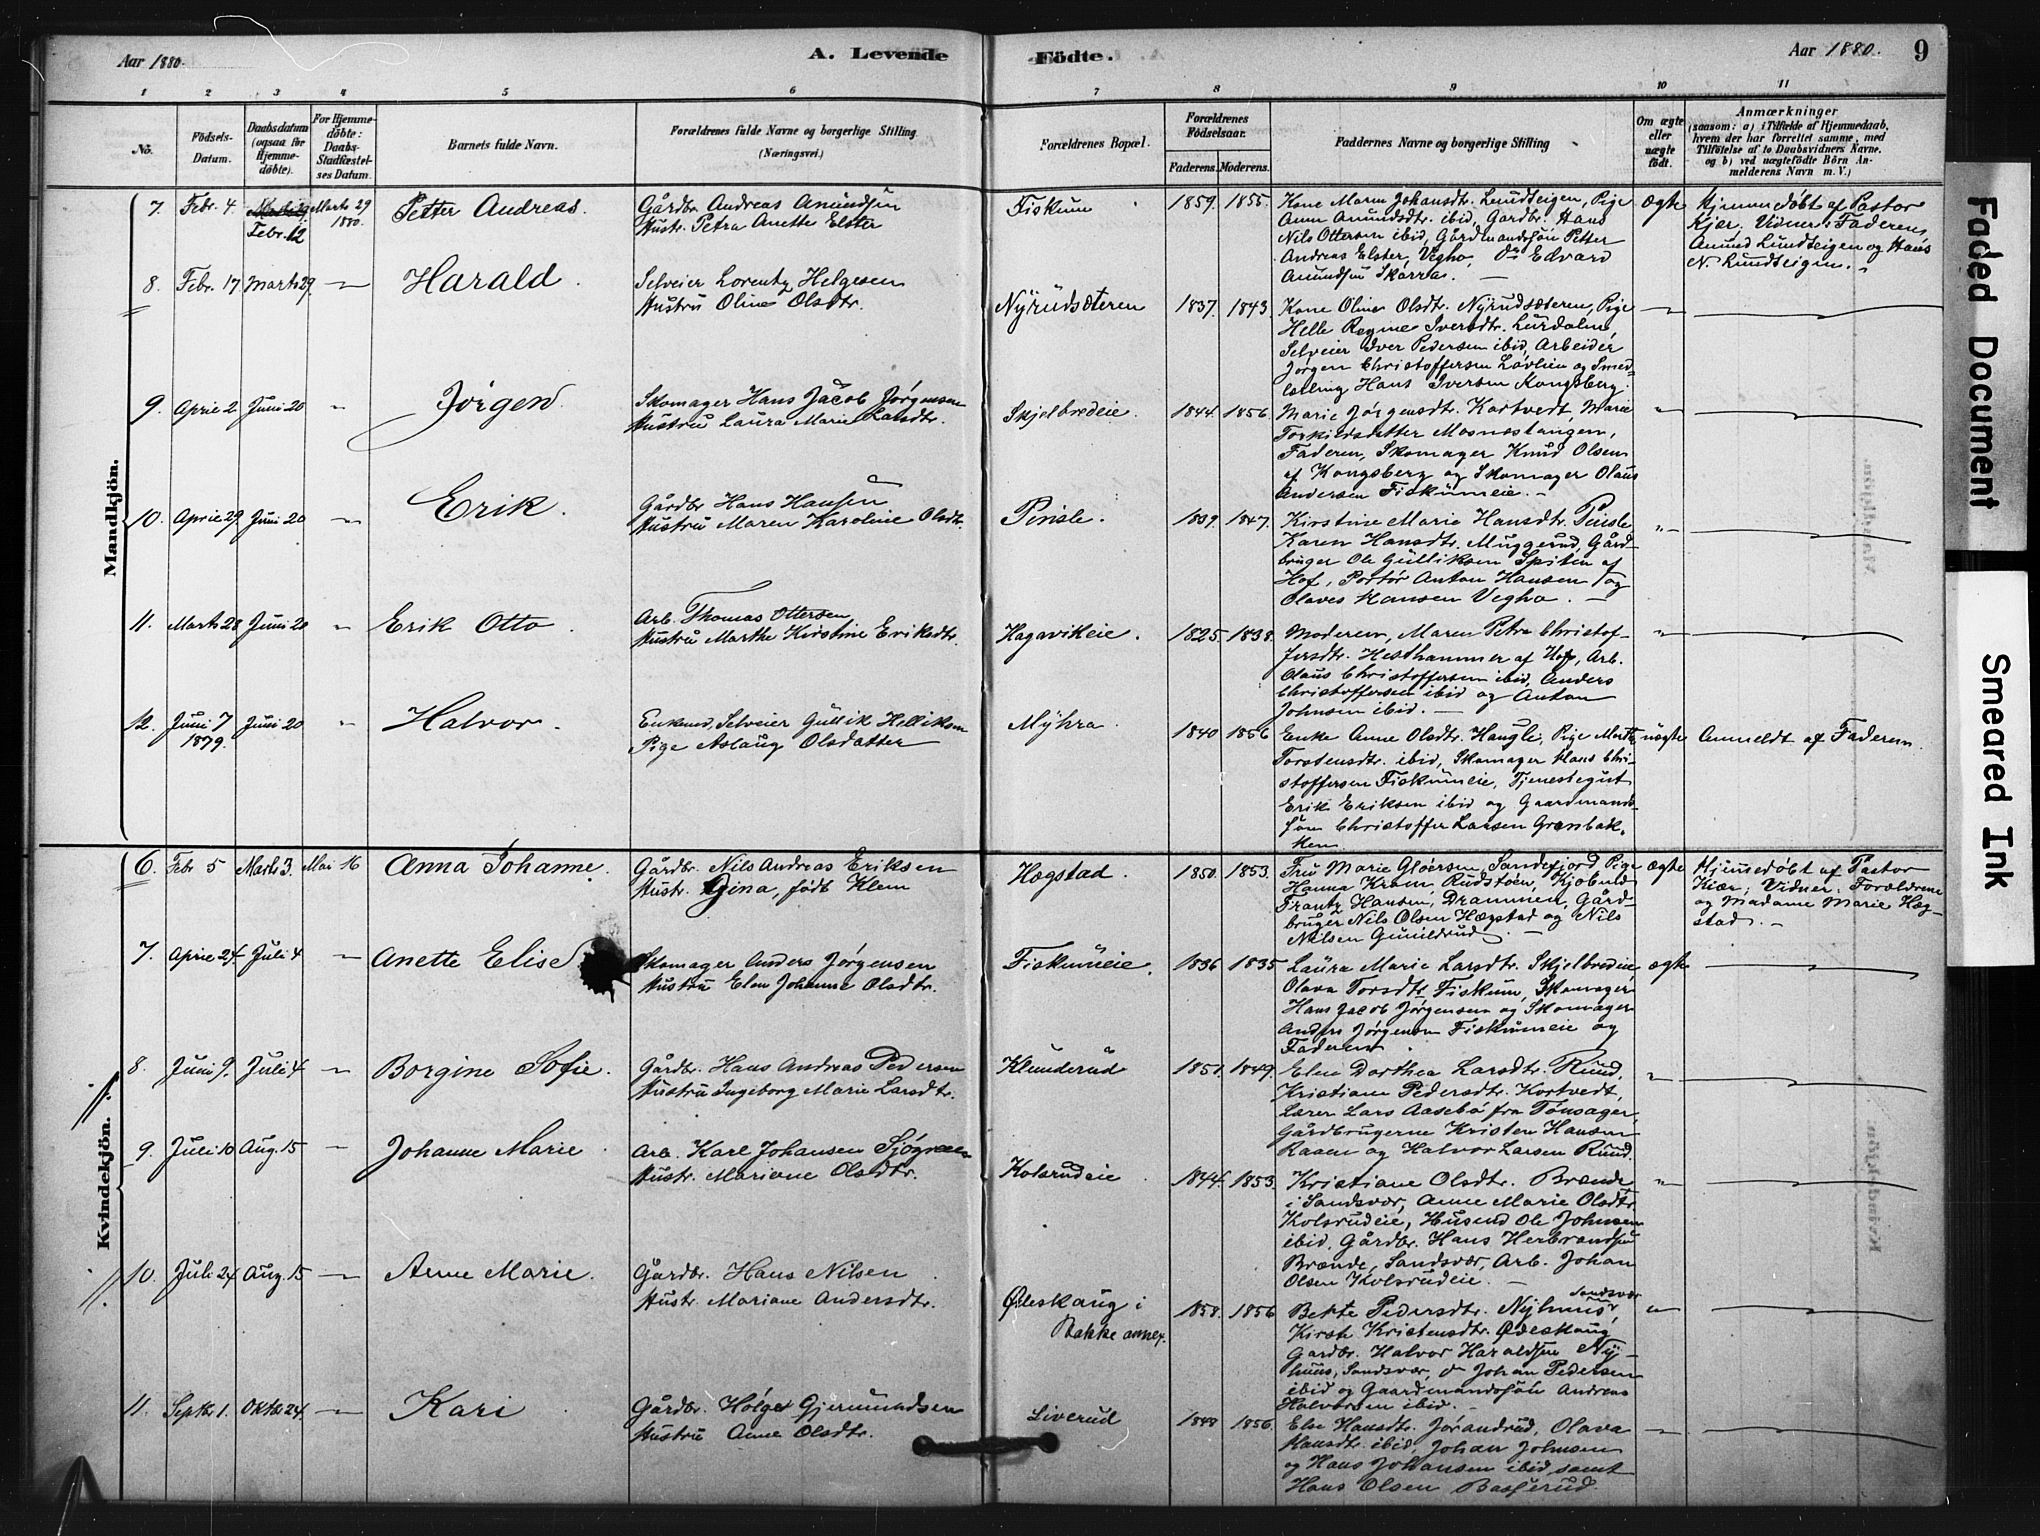 Aar 1880. A. Levende Födte. Aar 1880. 9
1 2 3 4 5 6 7 8 9 10 11
No.
Födsels-
Datum.
Daabsdatum
(ogsaa for
Hjemme-
döbte).
For Hjemme-
döbte:
Daabs-
Stadfæstel-
ses Datum.
Barnets fulde Navn.
Forældrenes fulde Navne og borgerlige Stilling.
(Næringsvei.)
Forældrenes Bopæl.
Forældrenes
Födselsaar.
Faderens. Moderens.
Faddernes Navne og borgerlige Stilling
Om ægte
eller
uægte
födt.
Anmærkninger
(saasom: a) i Tilfælde af Hjemmedaab,
hvem der har forrettet samme, med
Tilföielse af to Daabsvidners Navne.
og b) ved uægtefödte Börn An-
melderens Navn m. V.)
Mandkjön.
7. Febr. 4. Febr. 12 Marts 29 1880. Petter Andreas.
Gårdbr. Andreas Amundsen
Hustr. Petra Anette Elster
Fiskum 1859. 1855.
Kone Maren Johansdt. Lundteigen, Pige
Anne Amundsdtr. ibid, Gardbr. Hans
Nils Ottersen ibid, Gårdmandssøn Petter
Andreas Elster, Vegho, do Edvard
Amundsen Skarra. —
Ægte
Hjemmedøbt af Pastor
Kjær. Vidner: Faderen,
Amund Lundteigen og Hans
N. Lundteigen.
8. Febr. 17 Marts 29. — Harald.
Selveier Lorentz Helgesen
Hustru Oline Olsdtr.
Nyrudsæteren 1837. 1843.
Kone Oline Olsdtr. Nyrudsæteren, Pige
Helle Regine Iversdtr. Lurdalen,
Selveier Iver Pedersen ibid, Arbeider
Jørgen Christoffersen Løvlien og Smed-
lærling Hans Iversen Kongsberg.
9. April 2. Juni 20 " Jørgen.
Skomager Hans Jacob Jørgensen
Hustru Laura Marie Larsdtr.
Skjelbredeie. 1844. 1856.
Marie Jørgensdtr. Kortvedt, Marie
Torkildsdatter Mosnæstangen,
Faderen, Skomager Knud Olsen
af Kongsberg og Skomager Olaus
Andersen Fiskumeie. —
10. April 29. Juni 20 — Erik.
Gårdbr. Hans Hansen
Hustru Maren Karoline Olsdtr.
Pinsle. 1839. 1847.
Kirstine Marie Hansdtr. Pinsle
Karen Hansdtr. Muggerud, Gård-
bruger Ole Gulliksen Spiten af
Hof, Portør Anton Hansen og
Olaves Hansen Vegho. —
11. Marts 28 Juni 20 " Erik Otto.
Arb. Thomas Ottersen
Hustru Marthe Kirstine Eriksdtr.
Hagavikeie. 1825. 1838.
Moderen, Maren Petra Christof-
fersdtr. Hesthammer af Hof, Arb.
Olaus Christoffersen ibid, Anders
Christoffersen ibid og Anton
Johnsen ibid. —
12. Juni 7 1879. Juni 20 " Halvor.
Enkemd, Selveier Gullik Helliksen
Pige Aslaug Olsdatter
Myhra. 1840 1856
Enke Anne Olsdtr. Haugli, Pige Marthe
Torstensdtr. ibid, Skomager Hans Chri-
stoffersen Fiskumeie, Tjenestegut
Erik Eriksen ibid og Gaardmands-
søn Christoffer Larsen Grønbak-
ken.
uægte Anmeldt af Faderen.
Kvindekjön.
6. Febr 5 Marts 3. Mai 16 Anna Johanne.
Gårdbr. Nils Andreas Eriksen
Hustr. Gina, født Klem
Hægstad. 1850. 1853.
Fru Marie Gløersen, Sandefjord, Pige
Hanna Krom, Rudstøen, Kjøbmd
Frantz Hansen, Drammen, Gård-
bruger Nils Olsen Hægstad og Nils
Nilsen Gunildrud. —
ægte
Hjemmedøbt af Pastor
Kiær; Vidner: Forældrene
og Madame Marie Hæg-
stad. —
7. April 24. Juli 4 — Anette Elise
Skomager Anders Jørgensen
Hustru Elen Johanne Olsdtr.
Fiskumeie. 1836 1835
Laura Marie Larsdtr. Skjelbredeie
Olava Torsdtr. Fiskum, Skomager
Hans Jacob Jørgensen og Skomager
Anders Jørgensen Fiskumeie og
Faderen.
ægte
8. Juni 9. Juli 4 — Borgine Sofie.
Gårdbr. Hans Andreas Pedersen
Hustru Ingeborg Marie Larsdtr.
Klunderud 1851. 1849.
Elen Dorthea Larsdtr. Ruud,
Kristiane Pedersdtr. Kortvedt,
Lærer Lars Aasebø fra Tønsager,
Gårdbrugerne Kristen Hansen
Raaen og Halvor Larsen Ruud.
9. Juli 10 Aug. 15 — Johanne Marie.
Arb. Karl Johansen Sjøgreen
Hustr. Mariane Olsdtr.
Kolsrudeie 1844. 1853.
Kristiane Olsdtr. Brænde
i Sandsvær, Anne Marie Olsdtr.
Kolsrudeie, Husmd Ole Johnsen
ibid. Gårdbr. Hans Herbrandsen
Brænde, Sandsvær, Arb. Johan
Olsen Kolsrudeie. —
10. Juli 24 Aug. 15 — Anne Marie.
Gårdbr. Hans Nilsen
Hustr. Mariane Andersdtr.
Ødeskaug i
Bakke annex.
1858. 1856
Sandsvær
Berte Pedersdtr. Nyhuus,
Kirsti Kristensdtr. Ødeskaug
Gardbr. Halvor Haraldsen Ny-
huus, Sandsvær, do Johan Pedersen
ibid og Gaardmandssøn Andreas
Halvorsen ibid. —
11. Septbr 1. Oktbr 24. — Kari
Gårdbr. Holger Gjermundsen
Hustru Anne Olsdtr.
Liverud 1856.
Else Hansdtr. Jørandrud, Olava
Hansdtr. ibid, Johan Johnsen
og Hans Johansen ibid samt
Hans Olsen Basserud.
Faded Document
Smeared Ink